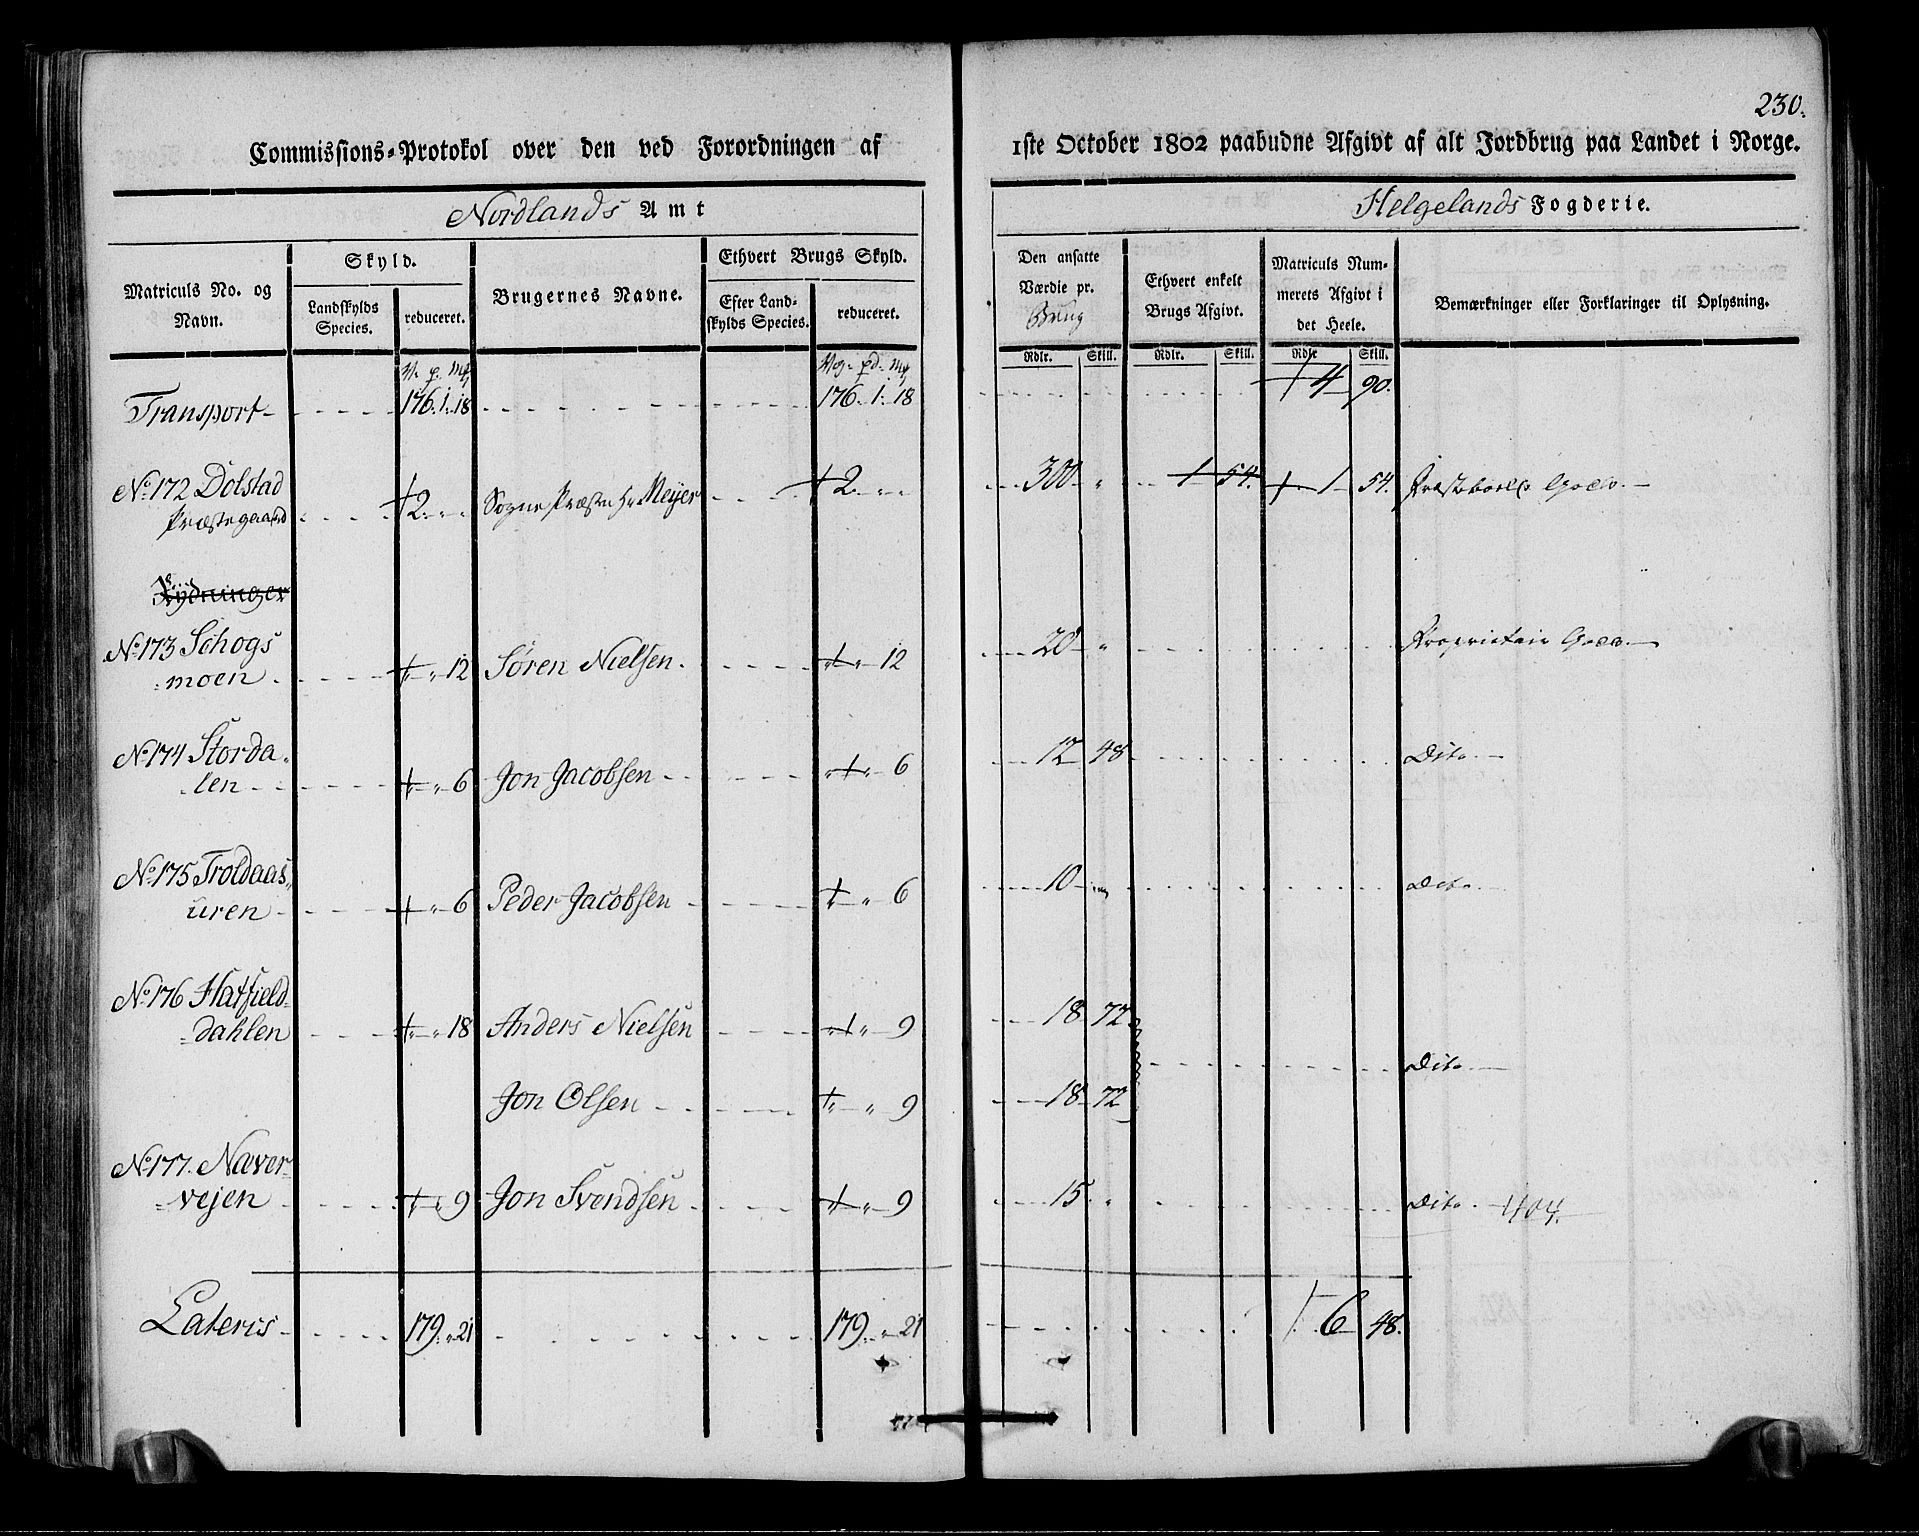 230.
Commissions-Protokol over den ved Forordningen af 1ste October 1802 paabudne Afgivt af alt Jordbrug paa Landet i Norge.
Nordlands Amt Helgelands Fogderie.
Matriculs No. og Navn. Skyld. Landskylds Species. reduceret. Brugernes Navne. Ethvert Brugs Skyld. Efter Landskylds Species. reduceret. Den ansatte Værdie pr. Brug Ethvert enkelt Brugs Afgivt. Matriculs Nummerets Afgivt i det Heele. Bemærkninger eller Forklaringer til Oplysning.
Rdlr. Skill. Rdlr. Skill. Rdlr. Skill.
V. p. Mk Vog. pd. Mk
Transport 176. 1. 18 176. 1. 18 4 90.
No. 172 Dolstad 2 Sogne Præsten Hr Meyer 2 300 " 1 54. 1 54. Præsteboels Gods.
Præstegaard
Rydninger
No. 173 Schogs 12 Søren Nielsen 12 20 " Proprietair Gods
moen
No. 174 Storda 6 Jon Jacobsen 6 12 48 Dito
len
No. 175 Troldaas 6 Peder Jacobsen 6 10 " Dito
uren
No. 176 Hatfield 18 Anders Nielsen 9 18 72
dahlen Dito
Jon Olsen 9 18 72
No. 177. Næver 9 Jon Svendsen 9 15. " Dito 404.
vejen
Lateris 179. " 21 179. " 21 6 48.